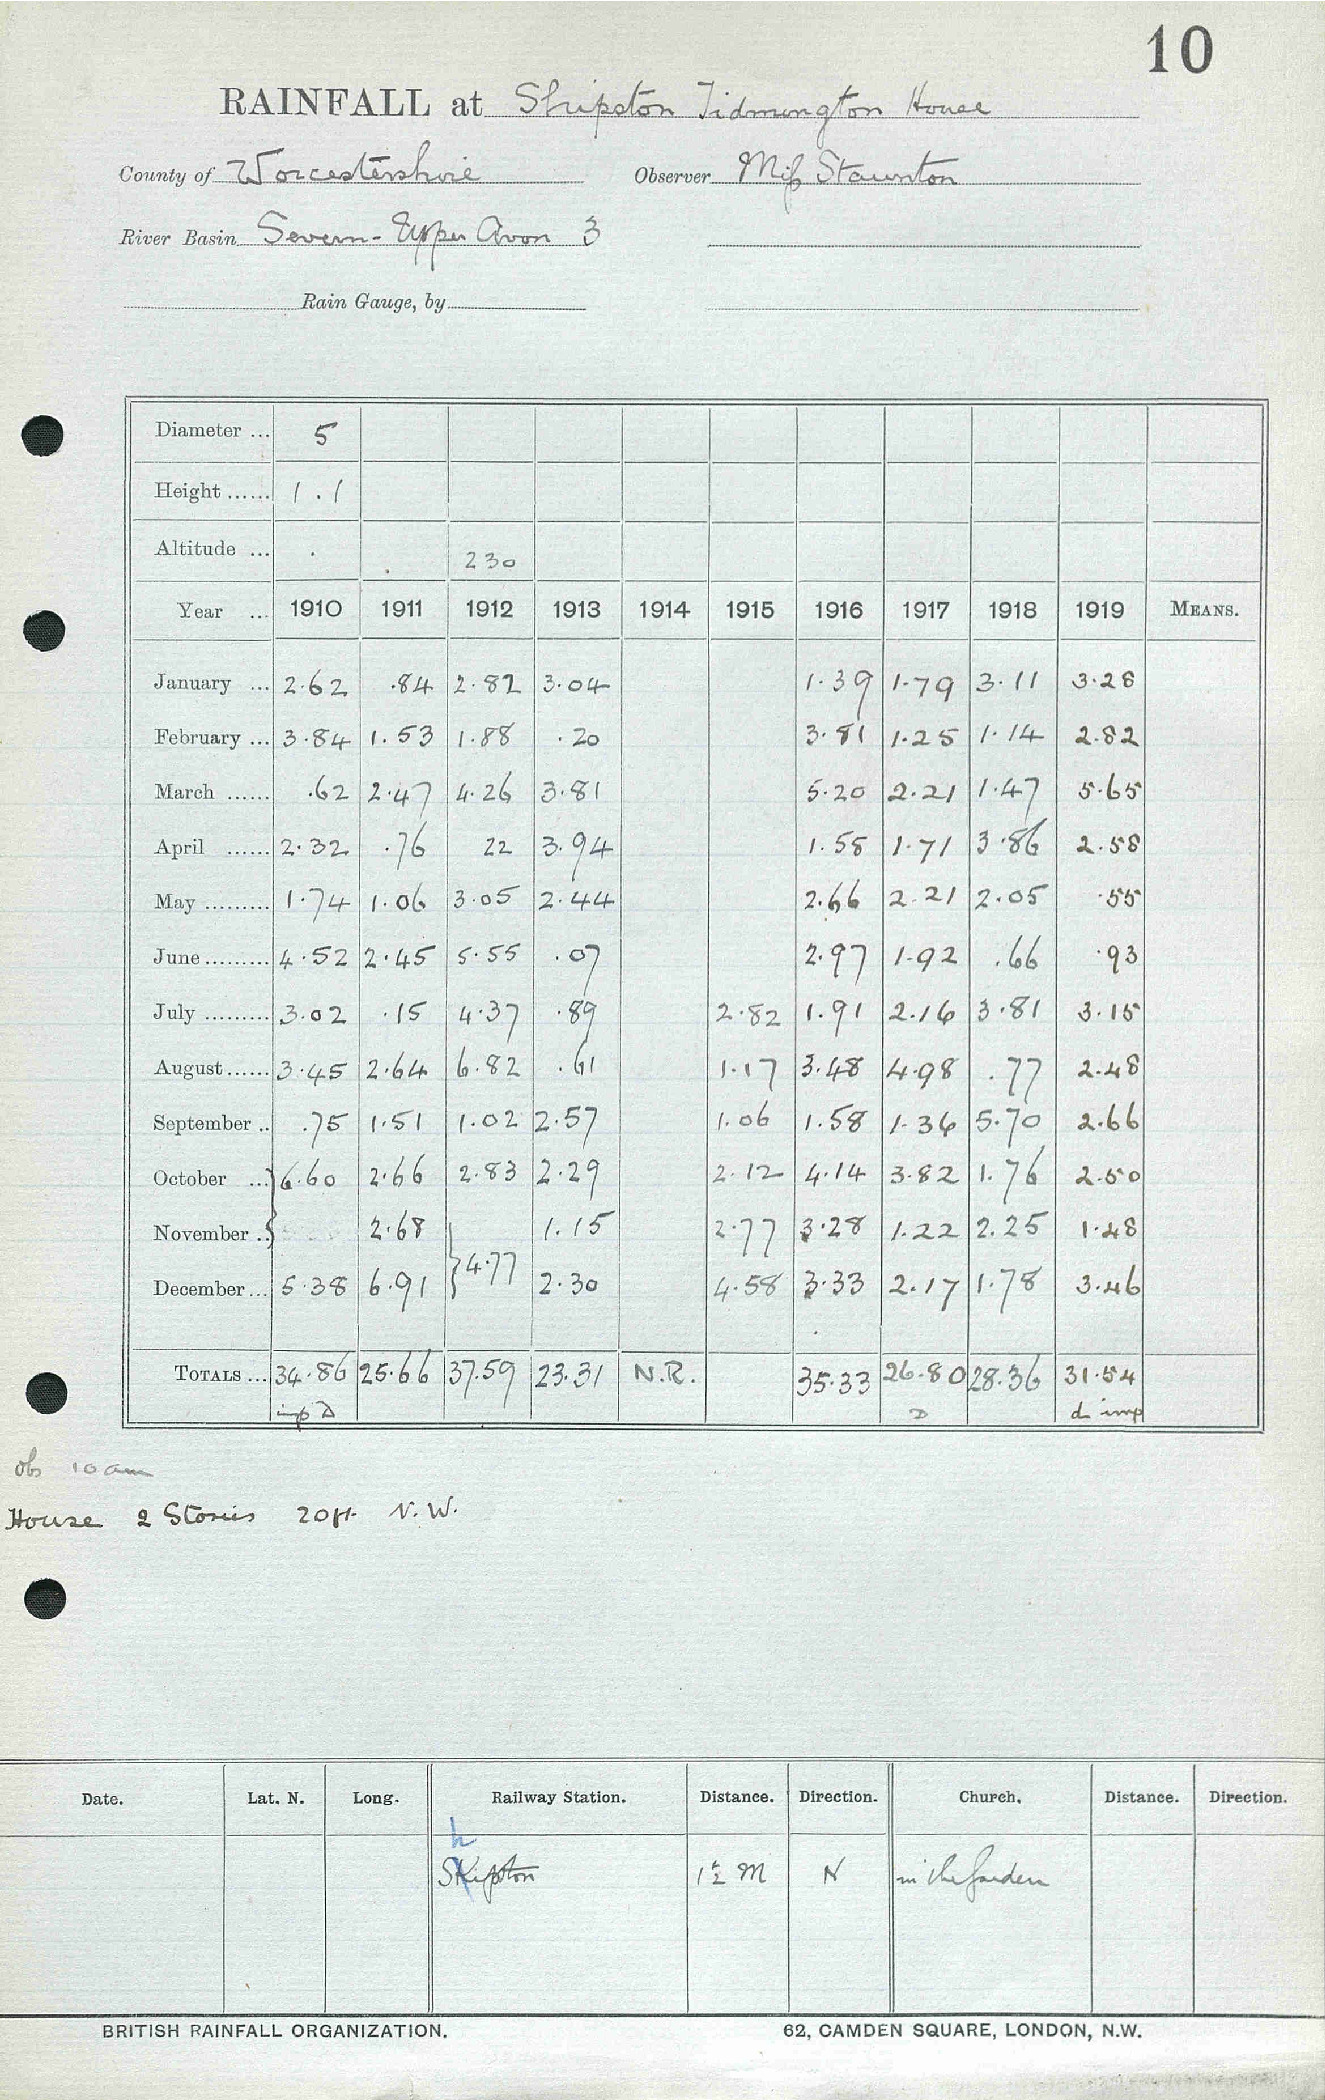 10
RAINFALL at Shipston Tidmington House
County of Worcestershire Observer Miss Staunton
River Basin Severn - Upper Avon 3
Rain Gauge, by
Diameter ... 5
Height ...... 1.1
Altitude ... . . 230
Year ... 1910 1911 1912 1913 1914 1915 1916 1917 1918 1919 MEANS.
January ... 2.62 .84 2.82 3.04 1.39 1.79 3.11 3.28
February ... 3.84 1.53 1.88 .20 3.81 1.25 1.14 2.82
March ...... .62 2.47 4.26 3.81 5.20 2.21 1.47 5.65
April ...... 2.32 .76 22 3.94 1.58 1.71 3.86 2.58
May ......... 1.74 1.06 3.05 2.44 2.66 2.21 2.05 .55
June ......... 4.52 2.45 5.55 .07 2.97 1.92 .66 .93
July ......... 3.02 .15 4.37 .89 2.82 1.91 2.16 3.81 3.15
August ...... 3.45 2.64 6.82 .61 1.17 3.48 4.98 .77 2.48
September .. .75 1.51 1.02 2.57 1.06 1.58 1.36 5.70 2.66
October ... } 6.60 2.66 2.83 2.29 2.12 4.14 3.82 1.76 2.50
November .. } 2.68 1.15 2.77 3.28 1.22 2.25 1.48
} 4.77
December ... 5.38 6.91 2.30 4.58 3.33 2.17 1.78 3.46
TOTALS ... 34.86 25.66 37.59 23.31 N.R. 35.33 26.80 28.36 31.54
imp D D d imp
obs 10 am
House 2 Stories 20ft N.W.
Date. Lat. N. Long. Railway Station. Distance. Direction. Church. Distance. Direction.
h
Skipston 1½ M N in the garden
BRITISH RAINFALL ORGANIZATION. 62, CAMDEN SQUARE, LONDON, N.W.